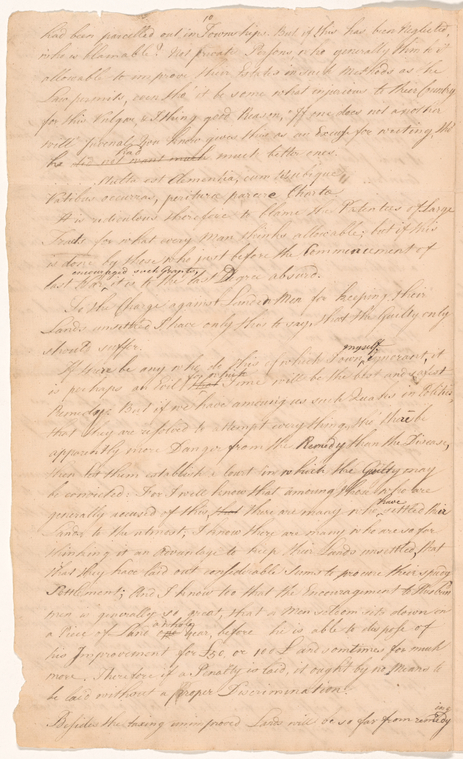 10
had been parcelled out in Townships. But if this has been neglected,
who is blamable? Not private Persons who generally think it
allowable to improve their Estates in such Methods as the
Law permits, even tho' it be some what injurious to their Country
for this Vulgar & I think good Reason, "If one does not another
will. Juvenal You know gives this as an Excuse for writing, tho'
he had much better ones.
Stulta est Clementia, cum tot ubique
Vatibus occurras, periturae parcere Chartae
It is ridiculous therefore to blame the Patentees of large
Tracts for what every Man thinks allowable; but if this
is done by those who just before the Commencement of
last encouraged such Grants, it is to the last Degree absurd.
To the Charge against Landed Men for keeping their
Lands unsettled I have only this to say, that the Guilty only
should suffer.
If there be any who do this of which I own myself ignorant, it
is perhaps an Evil of which Time will be the best and safest
Remedy. But if we have among us such Quacks in Politics
that they are resolved to attempt every thing, tho' there be
apparently more Danger from the Remedy than the Disease,
then let them establish a Court in which the Guilty may
be convicted: For I well know that among those who are
generally accused of this, there are many who have settled their
Lands to the utmost; I know there are many who are so far
thinking it an Advantage to keep their Lands unsettled, that
that they have laid out considerable Sums to promote their speedy
Settlement; And I know too that the Encouragement to
men is generally so great, that a Man seldom sits down on
a Piece of Land a whole year, before he is able to dispose of
his Improvement for or 100£ and sometimes for much
more. Therefore if a Penalty is laid, it ought by no Means to
be laid without a proper Discrimination.
Besides the taxing unimproved Lands will be so far from remedying